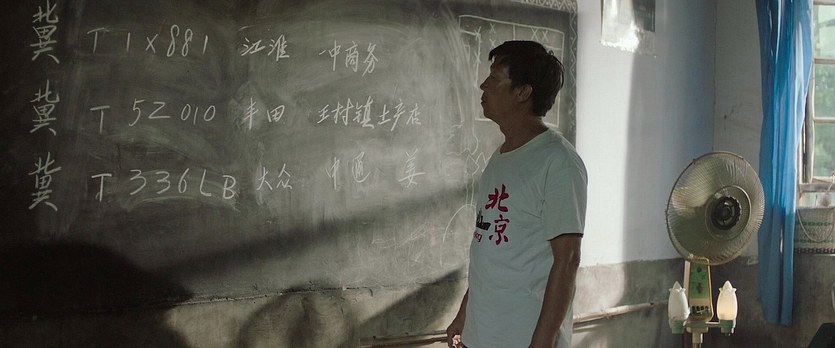 冀 T 1X881 江淮 中商务
冀 T 52010 丰田 王村镇土产店
冀 T 336LB 大众 中通 姜
北京